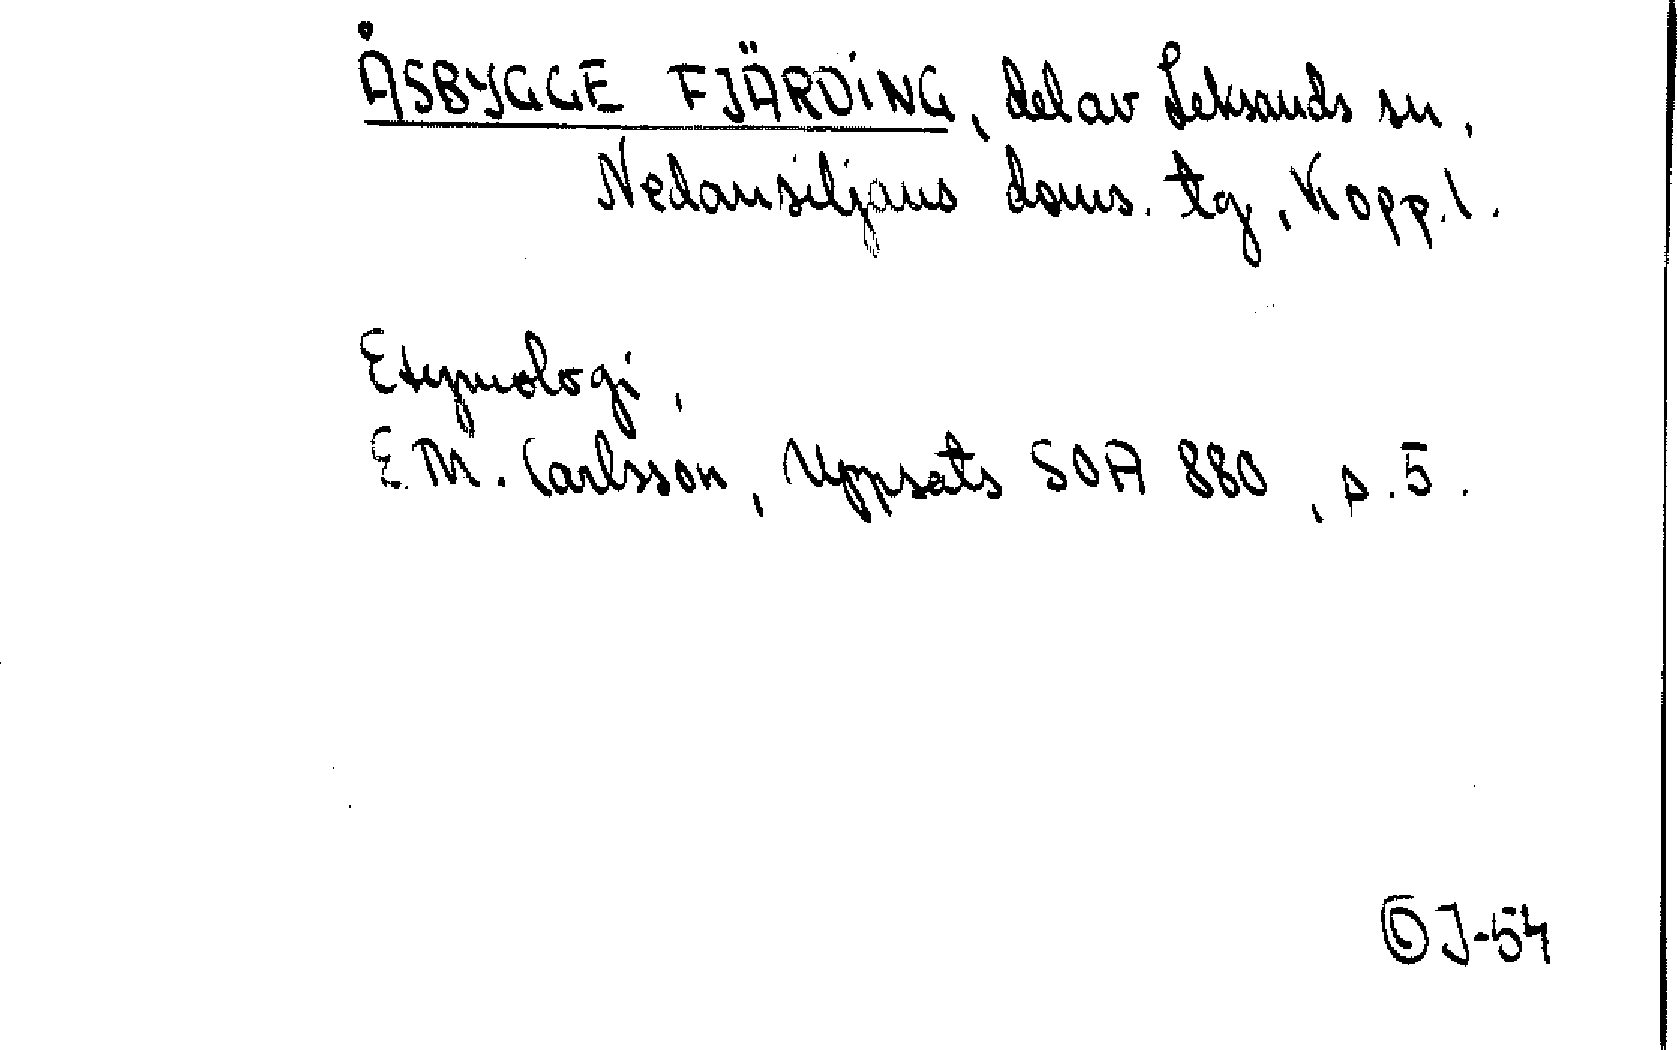 ÅSBYGGE FJÄRDING, del av Leksands sn,
Nedansiljans doms. tg, Kopp. l.
Etymologi,
E.M. Carlsson, Uppsats SOA 880, s. 5.
J-54